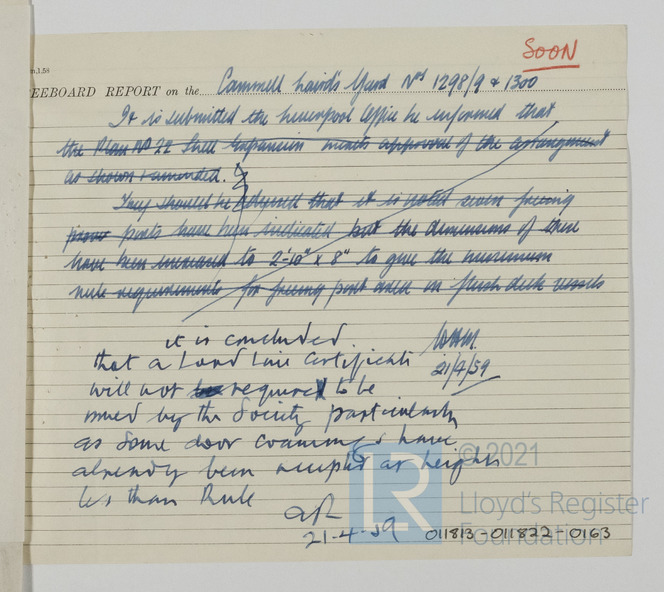 SOON
m,1.58
EEBOARD REPORT on the Cammell Laird's Yard Nos 1298/9 & 1300
It is submitted the Liverpool Office be informed that
the Plan No 22 Shell Expansion merits approval of the arrangement
as shown & amended.
They should be advised that it is noted seven freeing
ports have been indicated but the dimensions of these
have been increased to 2'-10" x 8" to give the minimum
rule requirements for freeing port area in flush deck vessels
it is concluded
that a Load Line Certificate
21/4/59
will not be required to be
issued by the Society particularly
as some door coamings have
already been accepted at heights
less than Rule
21-4-59
© 2021
LR
Lloyd's Register
Foundation
011813-011822-0163